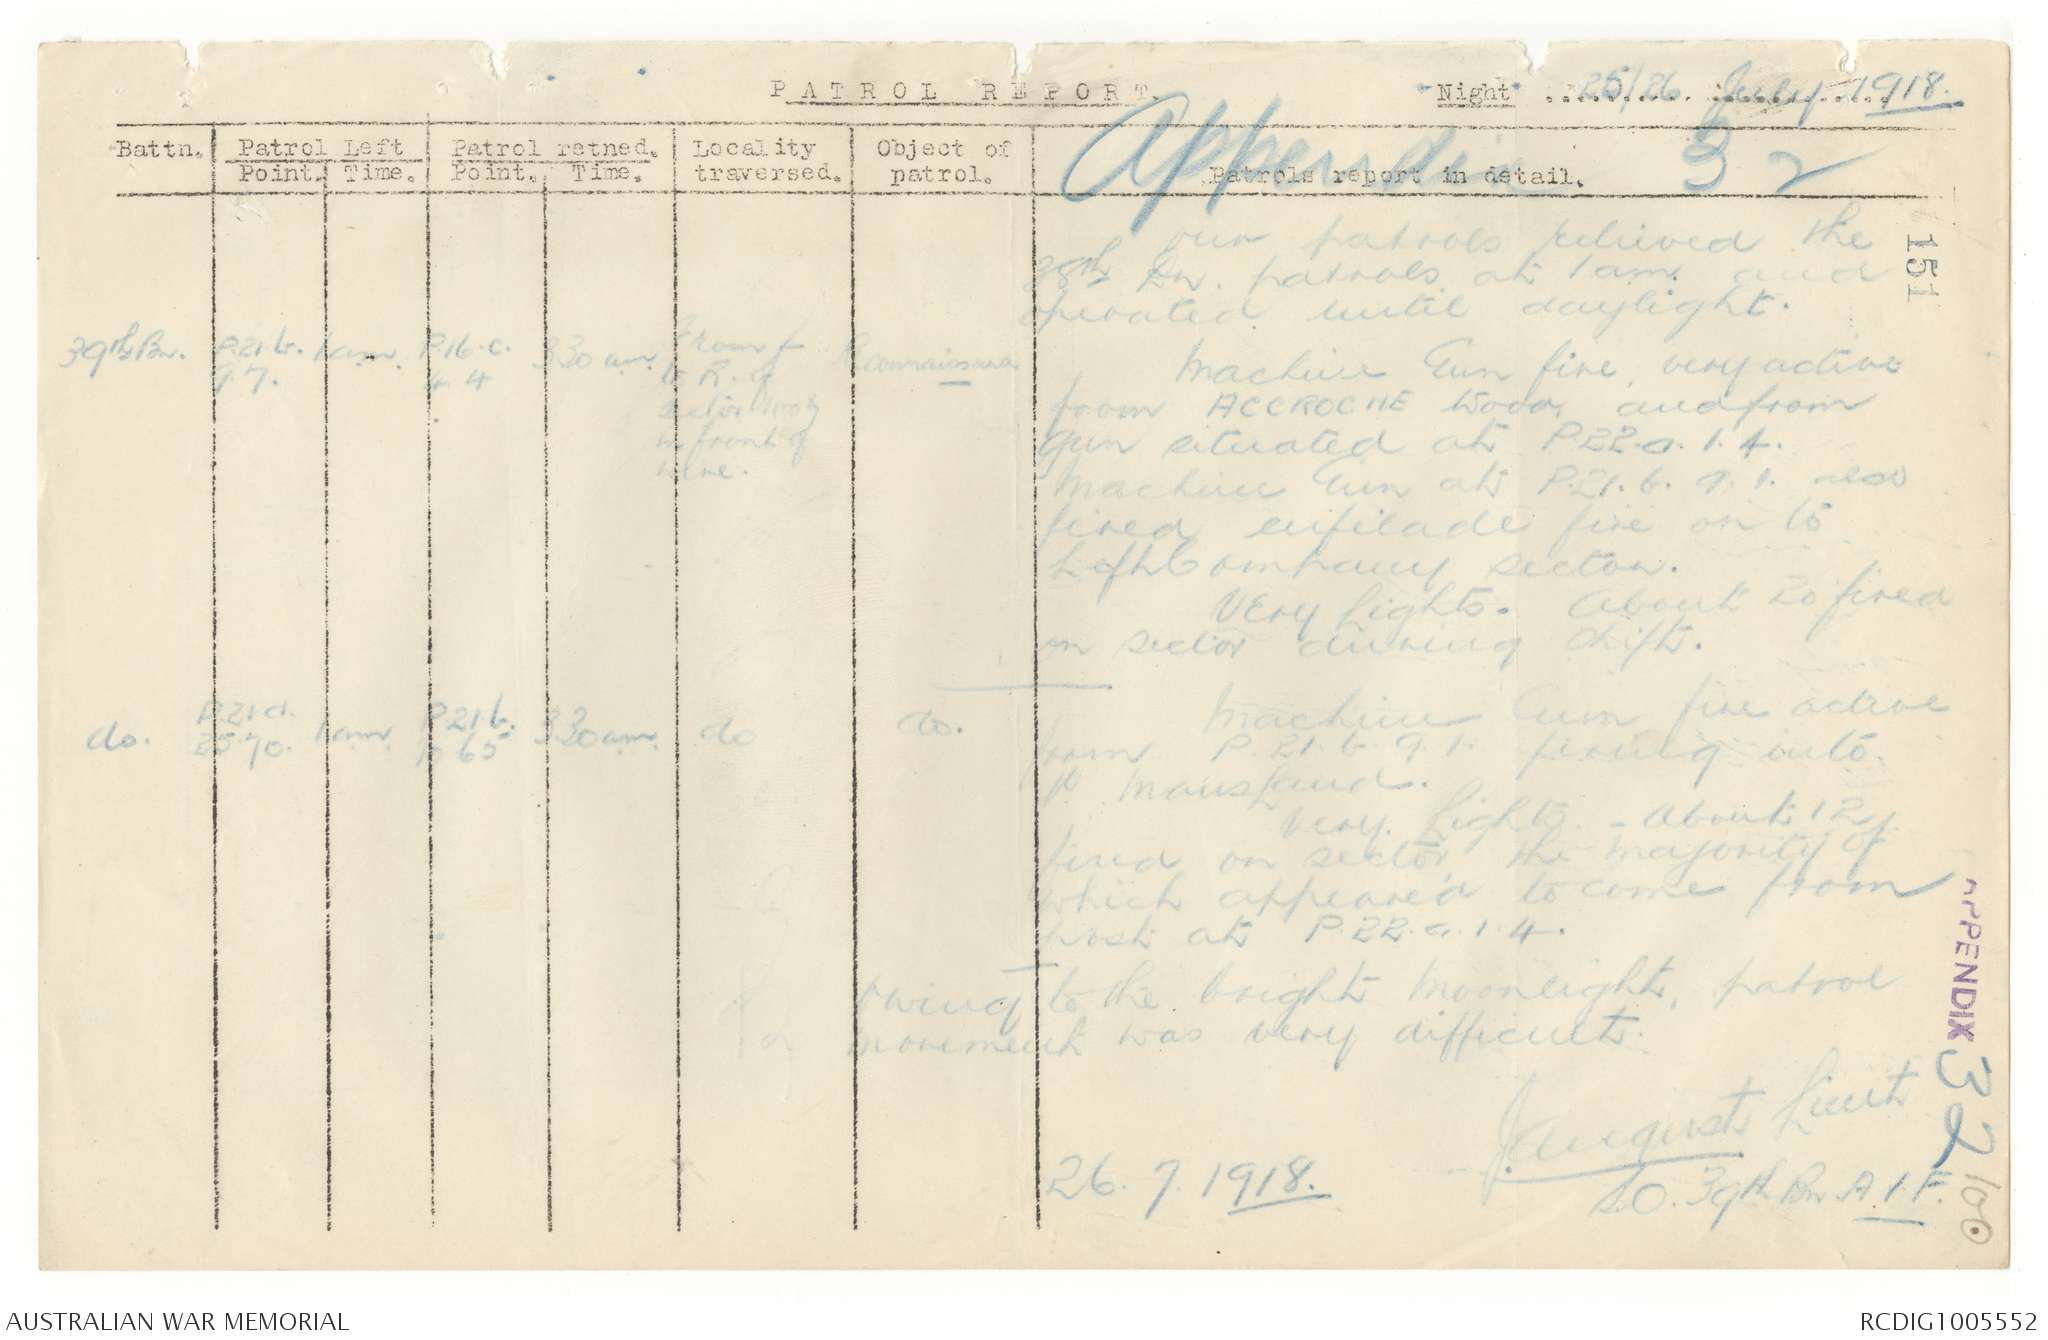 PATROL REPORT.
Night 25/26 July 1918.
Appendix 32
Battn. Patrol Left Point. Time. Patrol retned. Point. Time. Locality traversed. Object of patrol. Patrols report in detail.
151
Our patrols relieved the
38th Bn. patrols at 1 am. and
operated until daylight.
39th Bn. P.21.b. 9.7. 1 am. P.16.c. 4.4 3.30 am. From L to R. of sector in front of wire. Reconnaissance
Machine Gun fire, very active
from ACCROCHE Wood, and from
gun situated at P.22.a.1.4.
Machine Gun at P.21.b.9.1. also
fired enfilade fire on to
Left Company sector.
Very Lights. About 20 fired
on sector during shift.
do. P.21.d. 25.70. 1 am. P.21.b. 10 65 3.30 am. do do.
Machine Gun fire active
from P.21.b.9.1. firing into
Mans Land.
Very Lights - About 12
fired on sector, the majority of
which appeared to come from
post at P.22.a.1.4.
Owing to the bright moonlight, patrol
movement was very difficult.
J. August Lieut
I.O. 39th Bn. A.I.F.
26.7.1918.
APPENDIX 32
100
AUSTRALIAN WAR MEMORIAL
RCDIG1005552